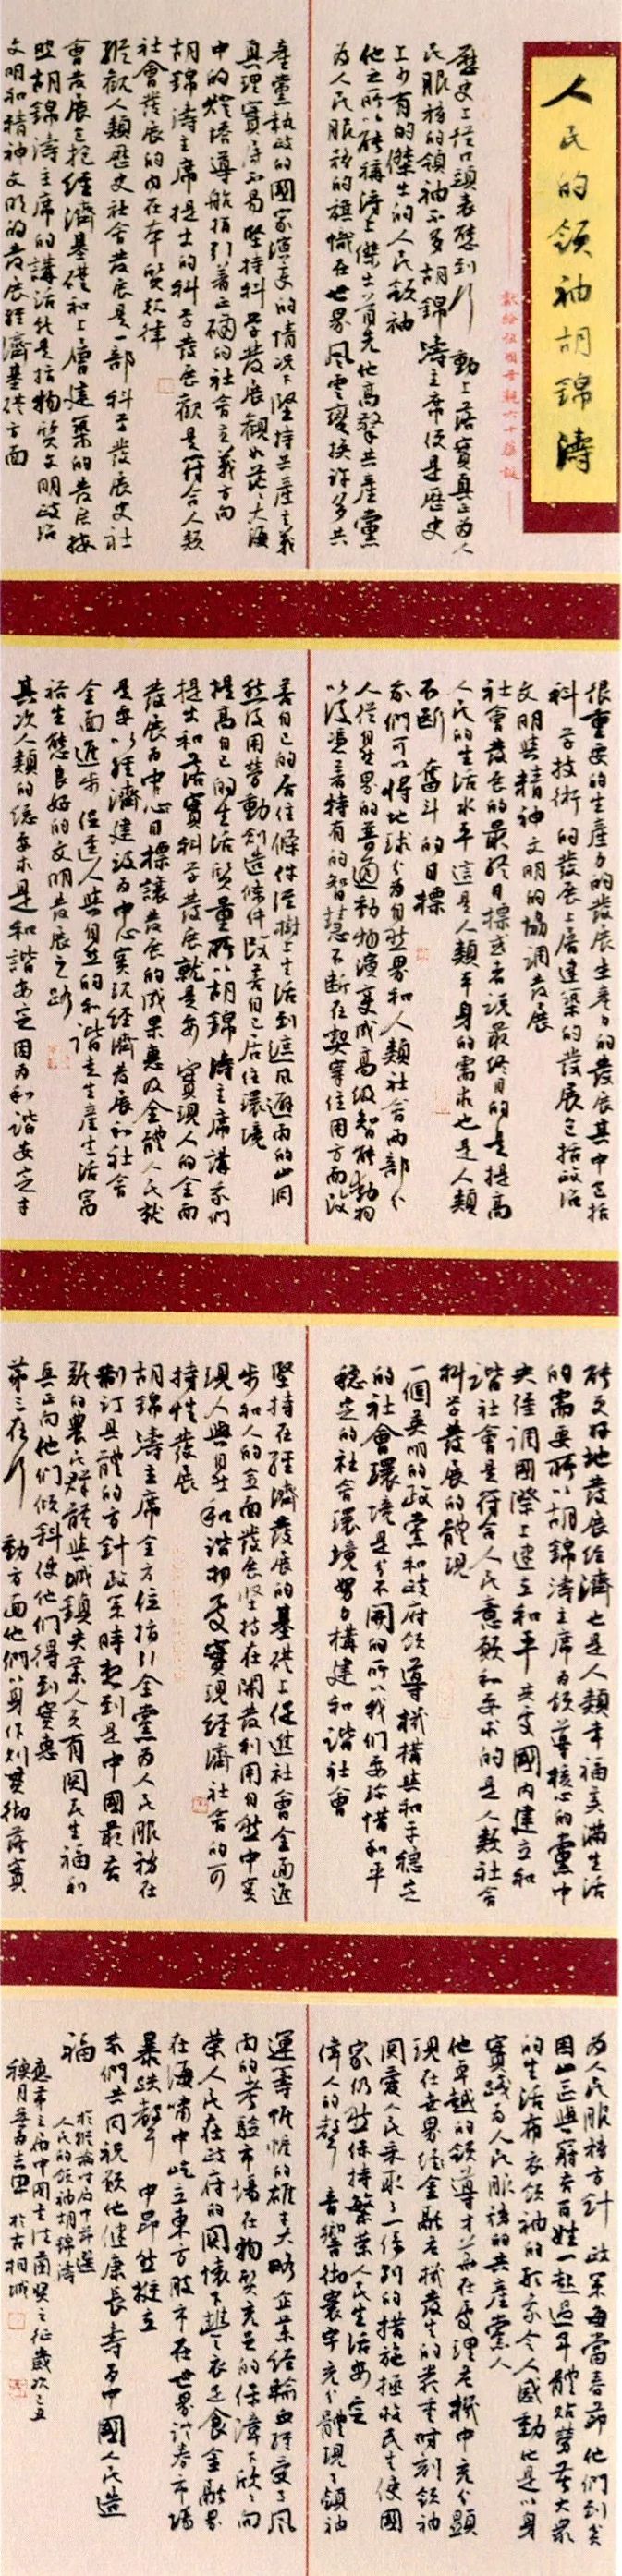 人民的領袖胡錦濤
獻給祖國母親六十華誕
歷史上從口頭表態到行動上落實真正為人
民服務的領袖不多胡錦濤主席便是歷史
上少有的傑出的人民領袖
他之所以能稱得上傑出首先他高擎共產黨
為人民服務的旗幟在世界風雲變换許多共
產黨執政的國家演變的情况下堅持共產主義
真理實屬不易堅持科學發展觀如茫茫大海
中的燈塔導航指引著正確的社會主義方向
胡錦濤主席提出的科學發展觀是符合人類
社會發展的内在本質規律
縱觀人類歷史社會發展是一部科學發展史社
會發展包括經濟基礎和上層建築的發展按
照胡錦濤主席的講話就是指物質文明政治
文明和精神文明的發展經濟基礎方面
很重要的生產力的發展生產力的發展其中包括
科學技術的發展上層建築的發展包括政治
文明與精神文明的協調發展
社會發展的最終目標或者說最終目的是提高
人民的生活水平這是人類本身的需求也是人類
不斷奮斗的目標
我們可以將地球分為自然界和人類社會兩部分
人從自然界的普通動物演變成高級智能動物
以後憑著特有的智慧不断在契穿住用方面改
善自己的居住條件從樹上生活到遮風避雨的山洞
然後用勞動創造條件改善自己居住環境
提高自己的生活質量所以胡錦濤主席講我們
提出和落實科學發展就是要實現人的全面
發展為中心目標讓發展的成果惠及全體人民就
是要以經濟建設為中心實現經濟發展和社會
全面進步促進人與自然的和諧走生產生活富
裕生態良好的文明發展之路
其次人類的總要求是和諧安定因為和諧安定才
能更好地發展經濟也是人類幸福美滿生活
的需要所以胡錦濤主席為領導核心的黨中
央強調國際上建立和平共處國内建立和
諧社會是符合人民意願和要求的是人類社會
科學發展的體現
一個英明的政黨和政府領導機構與和平穩定
的社會環境是分不開的所以我们要珍惜和平
穩定的社會環境努力構建和諧社會
堅持在經濟發展的基礎上促進社會全面進
步和人的全面發展坚持在開發利用自然中實
現人與自然和諧相處實現經濟社會的可
持性發展
胡錦濤主席全方位指引全黨為人民服務在
制订具體的方針政策時想到是中國最苦
難的農民群體與城鎮失業人员有関民生福利
真正向他們傾科使他們得到實惠
第三在行動方面他們以身作則贯彻落實
為人民服務方針政策每當春節他們到貧
困山區與窮苦百姓一起過年體貼勞苦大眾
的生活布衣領袖的形象令人感動他是以身
實踐為人民服務的共產黨人
他卓越的領導才華在處理危機中充分顯
現在世界經金融危機發生的嚴重时刻領袖
関爱人民采取了一係列的措施拯救民生使國
家仍然保持繁荣人民生活安定
偉人的聲音響徹寰宇充分體現了領袖
運籌帷幄的雄才大略企業經輪血經受了風
雨的考驗市場在物質充足的保障下欣欣向
荣人民在政府的関懷下豐衣足食金融界
在海嘯中屹立東方股市在世界証券市場
暴跌聲中昂然挺立
我們共同祝願他健康長壽为中國人民造
福
人民的領袖胡錦濤